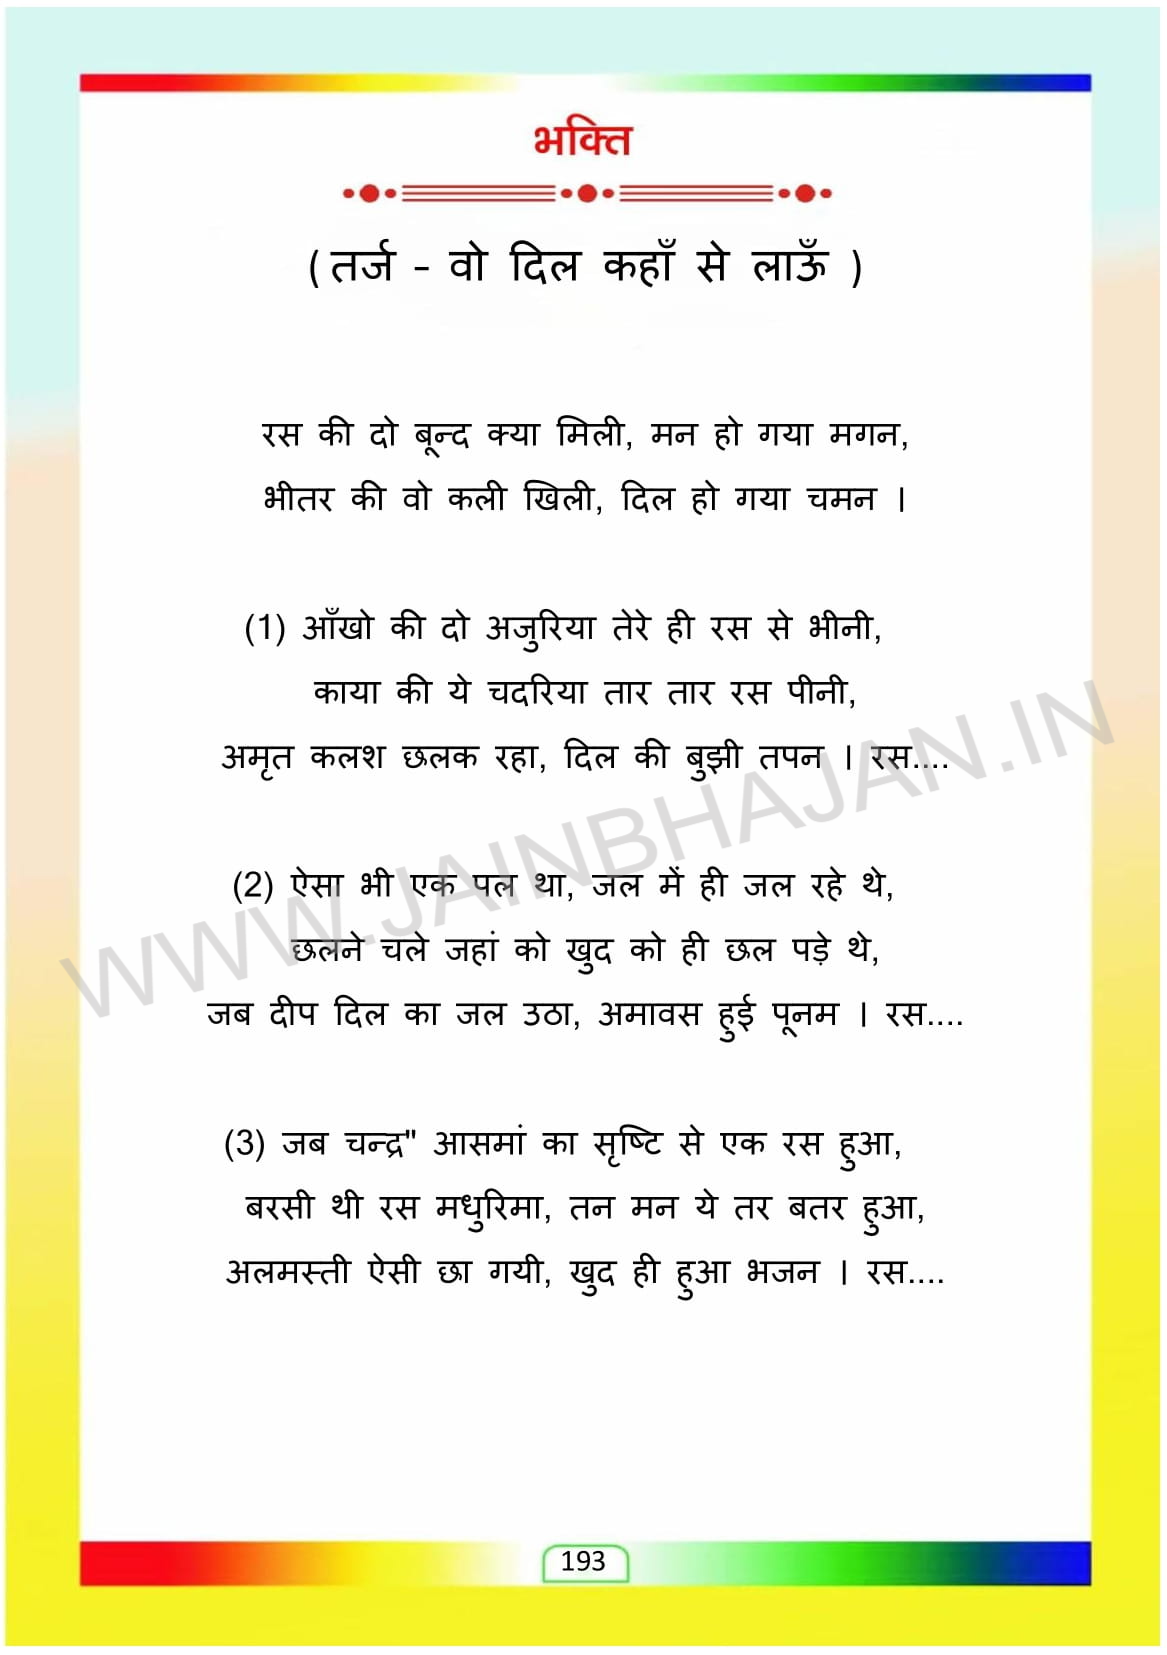 भक्ति
( तर्ज - वो दिल कहाँ से लाऊँ )
रस की दो बून्द क्या मिली, मन हो गया मगन,
भीतर की वो कली खिली, दिल हो गया चमन ।
(1) आँखो की दो अजुरिया तेरे ही रस से भीनी,
काया की ये चदरिया तार तार रस पीनी,
अमृत कलश छलक रहा, दिल की बुझी तपन । रस....
(2) ऐसा भी एक पल था, जल में ही जल रहे थे,
छलने चले जहां को खुद को ही छल पड़े थे,
जब दीप दिल का जल उठा, अमावस हुई पूनम । रस....
(3) जब चन्द्र" आसमां का सृष्टि से एक रस हुआ,
बरसी थी रस मधुरिमा, तन मन ये तर बतर हुआ,
अलमस्ती ऐसी छा गयी, खुद ही हुआ भजन । रस....
WWW.JAINBHAJAN.IN
193